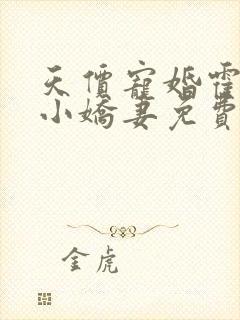 天價寵婚霍
小嬌妻免費
金虎